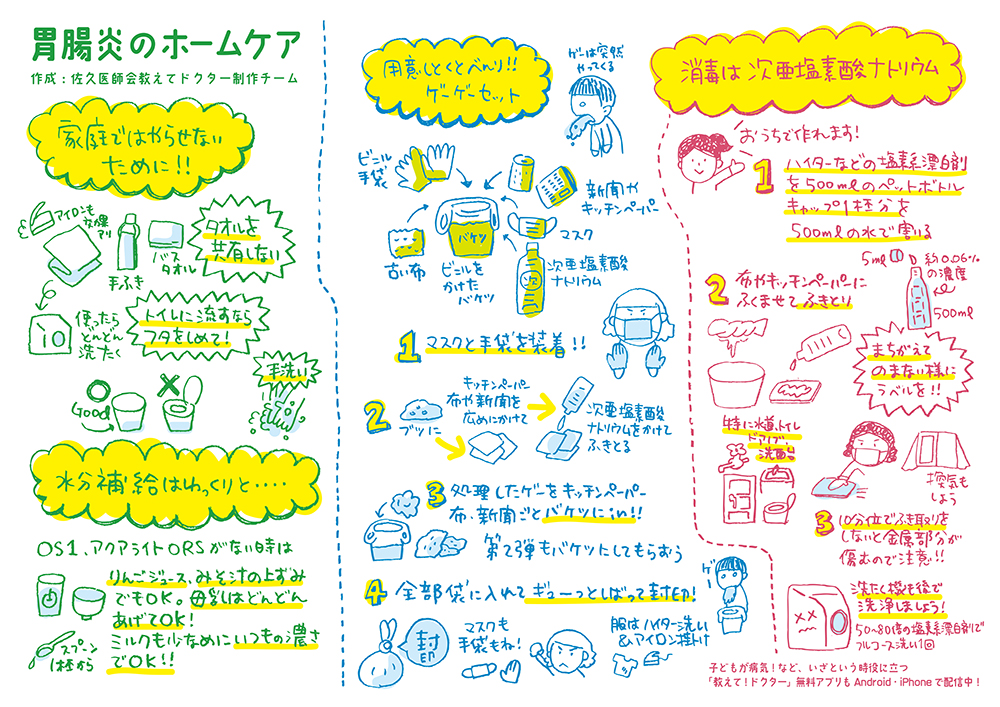 胃腸炎のホームケア
作成：佐久医師会教えてドクター制作チーム
家庭ではやらせない
ために!!
アイロンも
効果
アリ
手ふき
バス
タオル
タオルを
共有しない
使ったら
どんどん
洗たく
トイレに流すなら
フタをしめて!
Good
手洗い
水分補給はゆっくりと‥‥
OS1、アクアライトORSがない時は
りんごジュース、みそ汁の上ずみ
でもOK。母乳はどんどん
あげてOK!
ミルクも少なめにいつもの濃さ
でOK!!
スプーン
1杯から
用意しとくとべんり!!
ゲーゲーセット
ゲーは突然
やってくる
ビニール
手袋
新聞や
キッチンペーパー
マスク
バケツ
古い布
ビニールを
かけた
バケツ
次
次亜塩素酸
ナトリウム
1 マスクと手袋を装着!!
2 ブツに
キッチンペーパー
布や新聞を
広めにかけて
次亜塩素酸
ナトリウムをかけて
ふきとる
3 処理したゲーをキッチンペーパー
布、新聞ごとバケツにin!!
第2弾もバケットしてもらおう
4 全部袋に入れてギューっとしばって封印!
ゲー
封印
マスクも
手袋もね!
服はハイター洗い
&アイロン掛け
消毒は次亜塩素酸ナトリウム
おうちで作れます!
1 ハイターなどの塩素系漂白剤
を500mlのペットボトル
キャップ1杯分を
500mlの水で割る
5ml
約0.06%
の濃度
500ml
2 布やキッチンペーパーに
ふくませてふきとり
まちがえて
のまない様に
ラベルを!!
特に水道、トイレ
ドアノブ、
洗面
換気も
しよう
3 10分位でふき取りを
しないと金属部分が
傷むので注意!!
洗たく機も後で
洗浄しましょう!
50〜80倍の塩素系漂白剤で
フルコース洗い1回
子どもが病気！など、いざという時役に立つ
「教えて！ドクター」無料アプリも Android・iPhone で配信中！